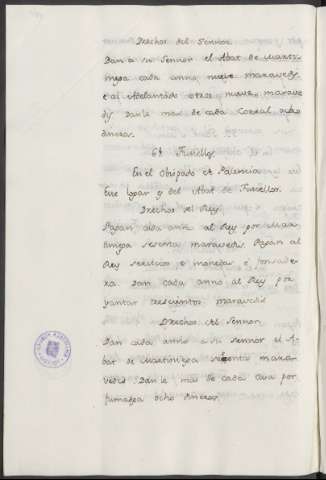 Drechos del Sennor.
Dan a su Sennor el Abat de Marti-
niega cada anno nueve maravedis
e al Adelantado otros nueve marave
dis Danle mas de cada Corral
dineros.
61 Fusiellos.
En el Obispado de Palencia
Este logar es del Abat de Fusiellos.
Drechos del Rey.
Pagan cada anno al Rey por Mar-
tiniega sesenta maravedis. Pagan al
Rey servicios e monedas e fonsade-
ra Dan cada anno al Rey por
yantar trescientos maravedis
Drechos del Sennor.
Dan cada anno a su Sennor el A-
bat de Martiniega sesenta mara-
vedis Danle mas de cada Casa por
fumadga ocho dineros.